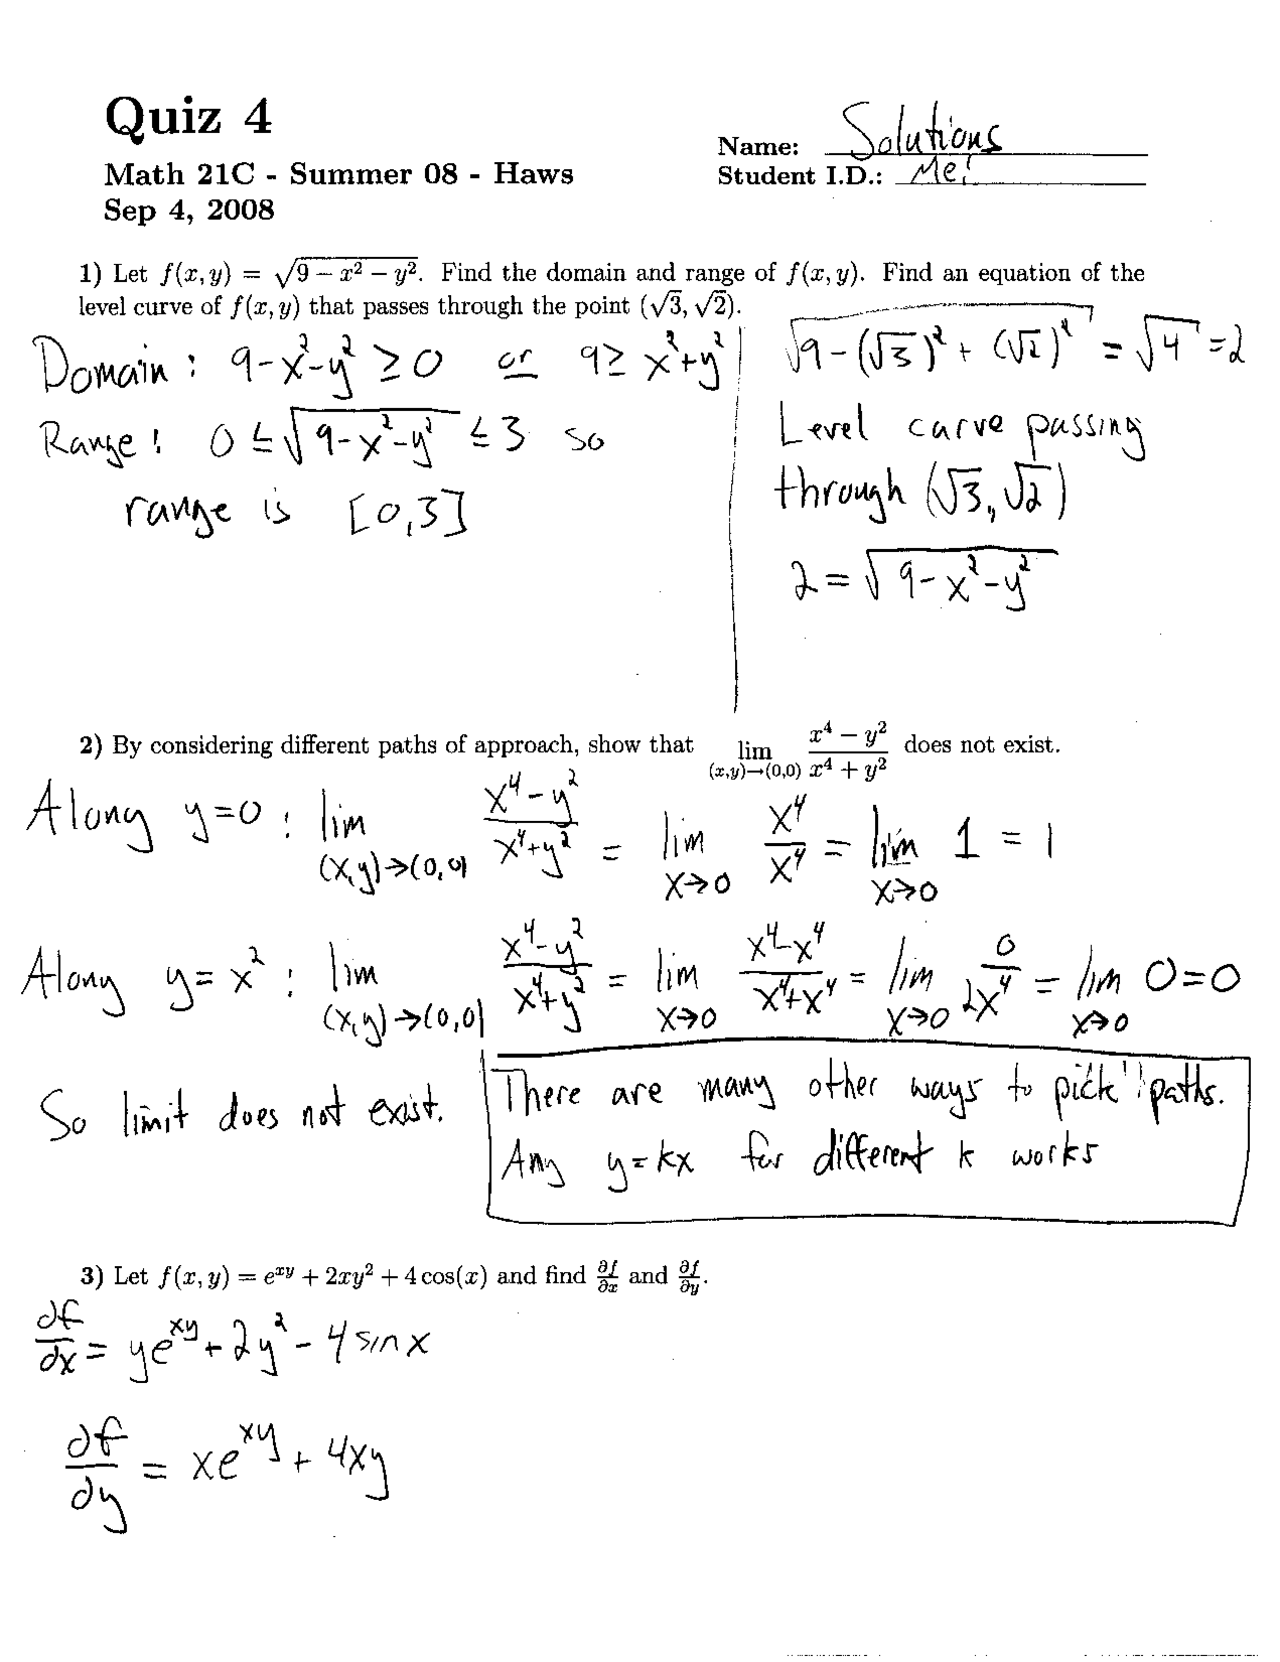 Quiz 4
Math 21C - Summer 08 - Haws
Sep 4, 2008
Name: Solutions
Student I.D.: Me!
1) Let f(x, y) = √(9 − x² − y²). Find the domain and range of f(x, y). Find an equation of the
level curve of f(x, y) that passes through the point (√3, √2).
Domain: 9-x²-y² ≥ 0 or 9 ≥ x²+y²
Range: 0 ≤ √(9-x²-y²) ≤ 3 so
range is [0,3]
√(9-(√3)²+(√2)²) = √4 = 2
Level curve passing
through (√3, √2)
2 = √(9-x²-y²)
2) By considering different paths of approach, show that lim (x,y)→(0,0) (x⁴ − y²)/(x⁴ + y²) does not exist.
Along y=0: lim (x,y)→(0,0) (x⁴-y²)/(x⁴+y²) = lim x→0 x⁴/x⁴ = lim x→0 1 = 1
Along y=x²: lim (x,y)→(0,0) (x⁴-y²)/(x⁴+y²) = lim x→0 (x⁴-x⁴)/(x⁴+x⁴) = lim x→0 0/2x⁴ = lim x→0 0=0
So limit does not exist.
There are many other ways to pick paths.
Any y=kx for different k works
3) Let f(x, y) = e^(xy) + 2xy² + 4 cos(x) and find ∂f/∂x and ∂f/∂y.
∂f/∂x = ye^(xy) + 2y² - 4 sin x
∂f/∂y = xe^(xy) + 4xy